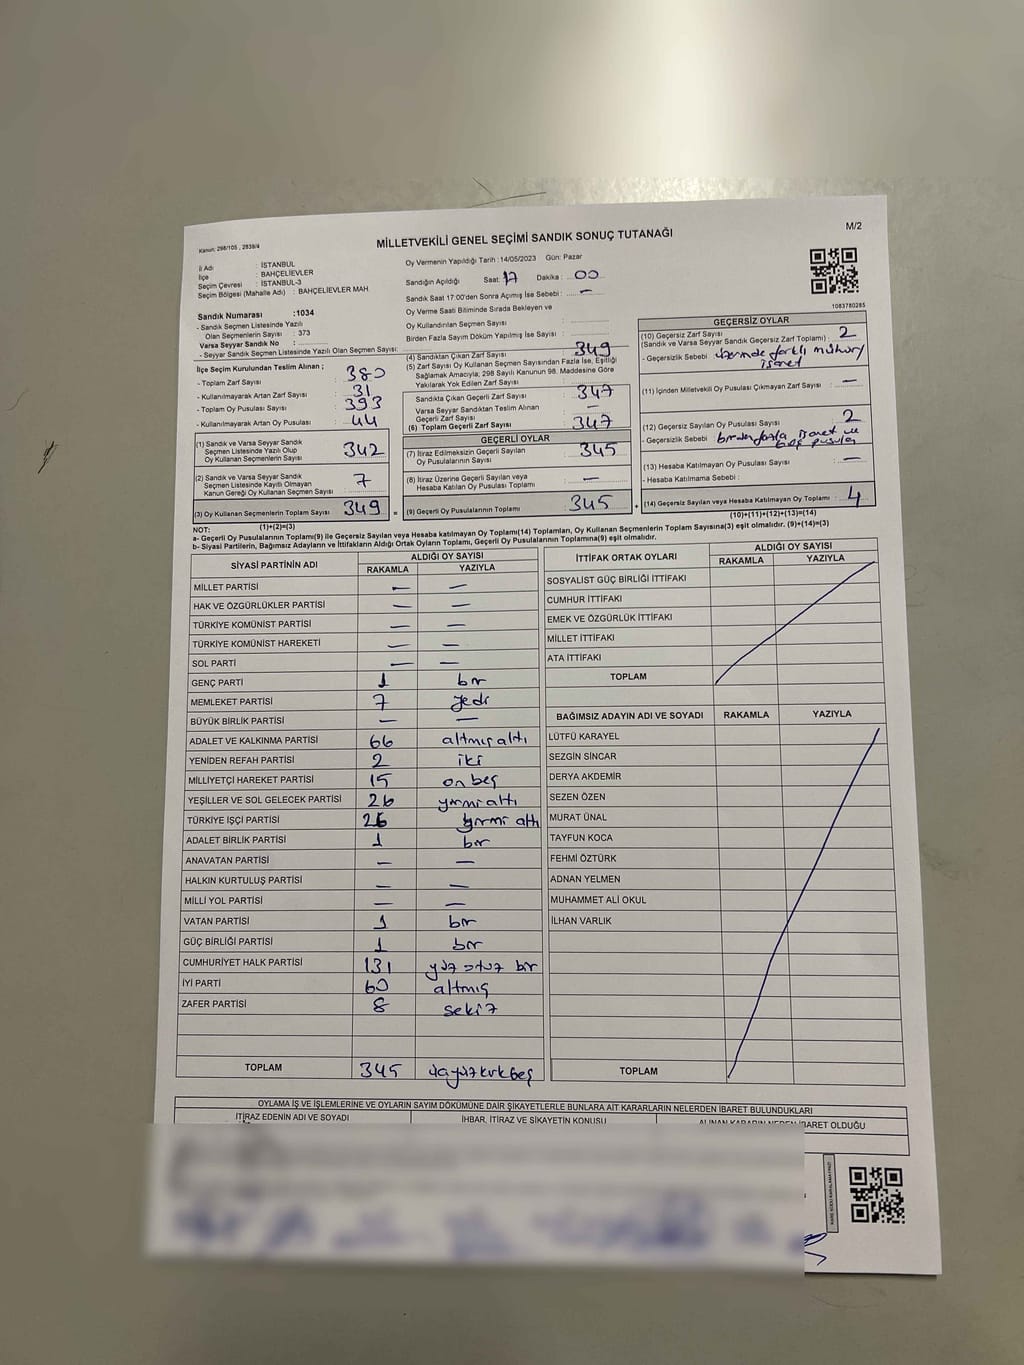 Kanun: 298/105 , 2839/4
MİLLETVEKİLİ GENEL SEÇİMİ SANDIK SONUÇ TUTANAĞI
M/2
İl Adı : İSTANBUL
İlçe : BAHÇELİEVLER
Seçim Çevresi : İSTANBUL-3
Seçim Bölgesi (Mahalle Adı) : BAHÇELİEVLER MAH
Sandık Numarası :1034
- Sandık Seçmen Listesinde Yazılı
Olan Seçmenlerin Sayısı : 373
Varsa Seyyar Sandık No :
- Seyyar Sandık Seçmen Listesinde Yazılı Olan Seçmen Sayısı:
Oy Vermenin Yapıldığı Tarih :14/05/2023 Gün: Pazar
Sandığın Açıldığı Saat: 17 Dakika : 00
Sandık Saat 17:00'den Sonra Açımış İse Sebebi : —
Oy Verme Saati Bitiminde Sırada Bekleyen ve
Oy Kullandırılan Seçmen Sayısı :
Birden Fazla Sayım Döküm Yapılmış İse Sayısı :
1083780285
İlçe Seçim Kurulundan Teslim Alınan ;
- Toplam Zarf Sayısı : 380
- Kullanılmayarak Artan Zarf Sayısı : 31
- Toplam Oy Pusulası Sayısı : 393
- Kullanılmayarak Artan Oy Pusulası : 44
(1) Sandık ve Varsa Seyyar Sandık
Seçmen Listesinde Yazılı Olup
Oy Kullanan Seçmenlerin Sayısı : 342
(2) Sandık ve Varsa Seyyar Sandık
Seçmen Listesinde Kayıtlı Olmayan
Kanun Gereği Oy Kullanan Seçmen Sayısı : 7
(3) Oy Kullanan Seçmenlerin Toplam Sayısı : 349
(1)+(2)=(3)
(4) Sandıktan Çıkan Zarf Sayısı : 349
(5) Zarf Sayısı Oy Kullanan Seçmen Sayısından Fazla İse, Eşitliği
Sağlamak Amacıyla; 298 Sayılı Kanunun 98. Maddesine Göre
Yakılarak Yok Edilen Zarf Sayısı :
Sandıkta Çıkan Geçerli Zarf Sayısı : 347
Varsa Seyyar Sandıktan Teslim Alınan
Geçerli Zarf Sayısı : —
(6) Toplam Geçerli Zarf Sayısı : 347
GEÇERLİ OYLAR
(7) İtiraz Edilmeksizin Geçerli Sayılan
Oy Pusulalarının Sayısı : 345
(8) İtiraz Üzerine Geçerli Sayılan veya
Hesaba Katılan Oy Pusulası Toplamı : —
(9) Geçerli Oy Pusulalarının Toplamı : 345
GEÇERSİZ OYLAR
(10) Geçersiz Zarf Sayısı
(Sandık ve Varsa Seyyar Sandık Geçersiz Zarf Toplamı) : 2
- Geçersizlik Sebebi : üzerinde farklı mühür/
işaret
(11) İçinden Milletvekili Oy Pusulası Çıkmayan Zarf Sayısı : —
(12) Geçersiz Sayılan Oy Pusulası Sayısı : 2
- Geçersizlik Sebebi : birden fazla işaret ve
boş pusula
(13) Hesaba Katılmayan Oy Pusulası Sayısı : —
- Hesaba Katılmama Sebebi :
(14) Geçersiz Sayılan veya Hesaba Katılmayan Oy Toplamı : 4
(10)+(11)+(12)+(13)=(14)
NOT:
a- Geçerli Oy Pusulalarının Toplamı(9) ile Geçersiz Sayılan veya Hesaba katılmayan Oy Toplamı(14) Toplamları, Oy Kullanan Seçmenlerin Toplam Sayısına(3) eşit olmalıdır. (9)+(14)=(3)
b- Siyasi Partilerin, Bağımsız Adayların ve İttifakların Aldığı Ortak Oyların Toplamı, Geçerli Oy Pusulalarının Toplamına(9) eşit olmalıdır.
SİYASİ PARTİNİN ADI ALDIĞI OY SAYISI
RAKAMLA YAZIYLA
MİLLET PARTİSİ — —
HAK VE ÖZGÜRLÜKLER PARTİSİ — —
TÜRKİYE KOMÜNİST PARTİSİ — —
TÜRKİYE KOMÜNİST HAREKETİ — —
SOL PARTİ — —
GENÇ PARTİ 1 bir
MEMLEKET PARTİSİ 7 yedi
BÜYÜK BİRLİK PARTİSİ — —
ADALET VE KALKINMA PARTİSİ 66 altmış altı
YENİDEN REFAH PARTİSİ 2 iki
MİLLİYETÇİ HAREKET PARTİSİ 15 on beş
YEŞİLLER VE SOL GELECEK PARTİSİ 26 yirmi altı
TÜRKİYE İŞÇİ PARTİSİ 26 yirmi altı
ADALET BİRLİK PARTİSİ 1 bir
ANAVATAN PARTİSİ — —
HALKIN KURTULUŞ PARTİSİ — —
MİLLİ YOL PARTİSİ — —
VATAN PARTİSİ 1 bir
GÜÇ BİRLİĞİ PARTİSİ 1 bir
CUMHURİYET HALK PARTİSİ 131 yüz otuz bir
İYİ PARTİ 60 altmış
ZAFER PARTİSİ 8 sekiz
TOPLAM 345 üçyüzkırkbeş
İTTİFAK ORTAK OYLARI ALDIĞI OY SAYISI
RAKAMLA YAZIYLA
SOSYALİST GÜÇ BİRLİĞİ İTTİFAKI
CUMHUR İTTİFAKI
EMEK VE ÖZGÜRLÜK İTTİFAKI
MİLLET İTTİFAKI
ATA İTTİFAKI
TOPLAM
BAĞIMSIZ ADAYIN ADI VE SOYADI RAKAMLA YAZIYLA
LÜTFÜ KARAYEL
SEZGİN SİNCAR
DERYA AKDEMİR
SEZEN ÖZEN
MURAT ÜNAL
TAYFUN KOCA
FEHMİ ÖZTÜRK
ADNAN YELMEN
MUHAMMET ALİ OKUL
İLHAN VARLIK
TOPLAM
OYLAMA İŞ VE İŞLEMLERİNE VE OYLARIN SAYIM DÖKÜMÜNE DAİR ŞİKAYETLERLE BUNLARA AİT KARARLARIN NELERDEN İBARET BULUNDUKLARI
İTİRAZ EDENİN ADI VE SOYADI İHBAR, İTİRAZ VE ŞİKAYETİN KONUSU ALINAN KARARIN NEDEN İBARET OLDUĞU